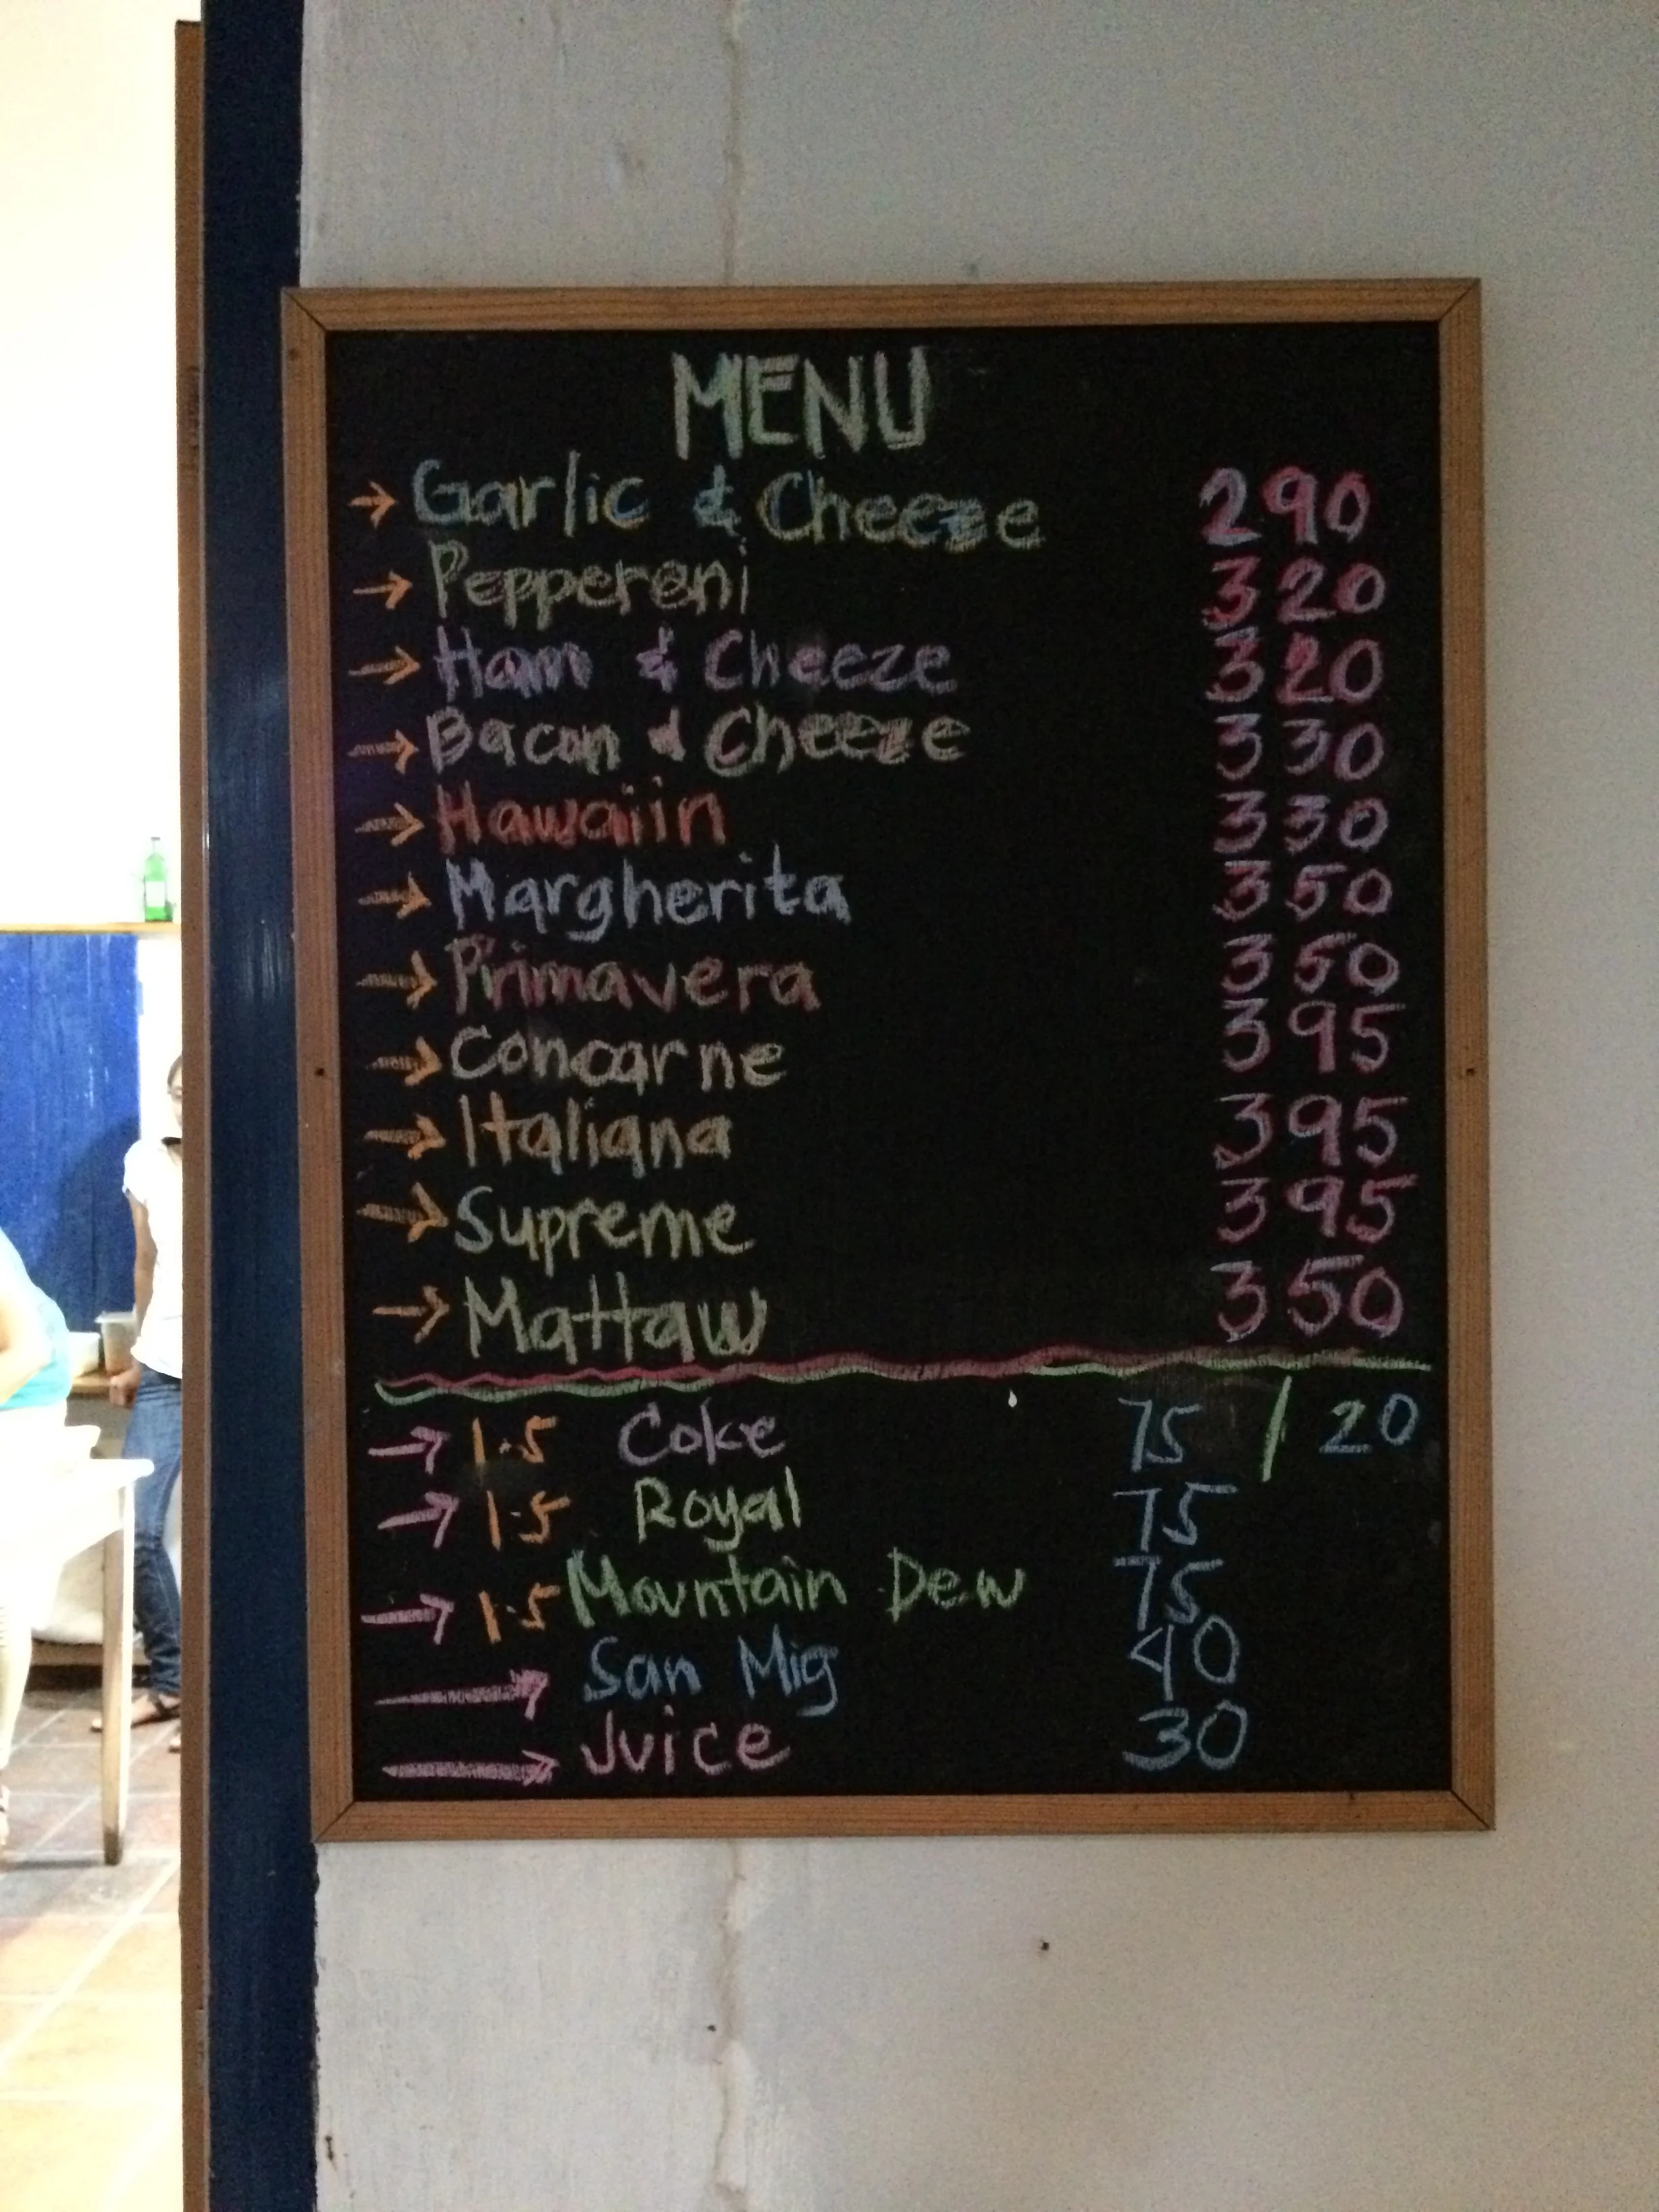 MENU
→ Garlic & Cheeze 290
→ Pepperoni 320
→ Ham & Cheeze 320
→ Bacon & Cheeze 330
→ Hawaiin 330
→ Margherita 350
→ Primavera 350
→ Concarne 395
→ Italiana 395
→ Supreme 395
→ Mattaw 350
→ 1.5 Coke 75 / 20
→ 1.5 Royal 75
→ 1.5 Mountain Dew 75
→ San Mig 40
→ Juice 30